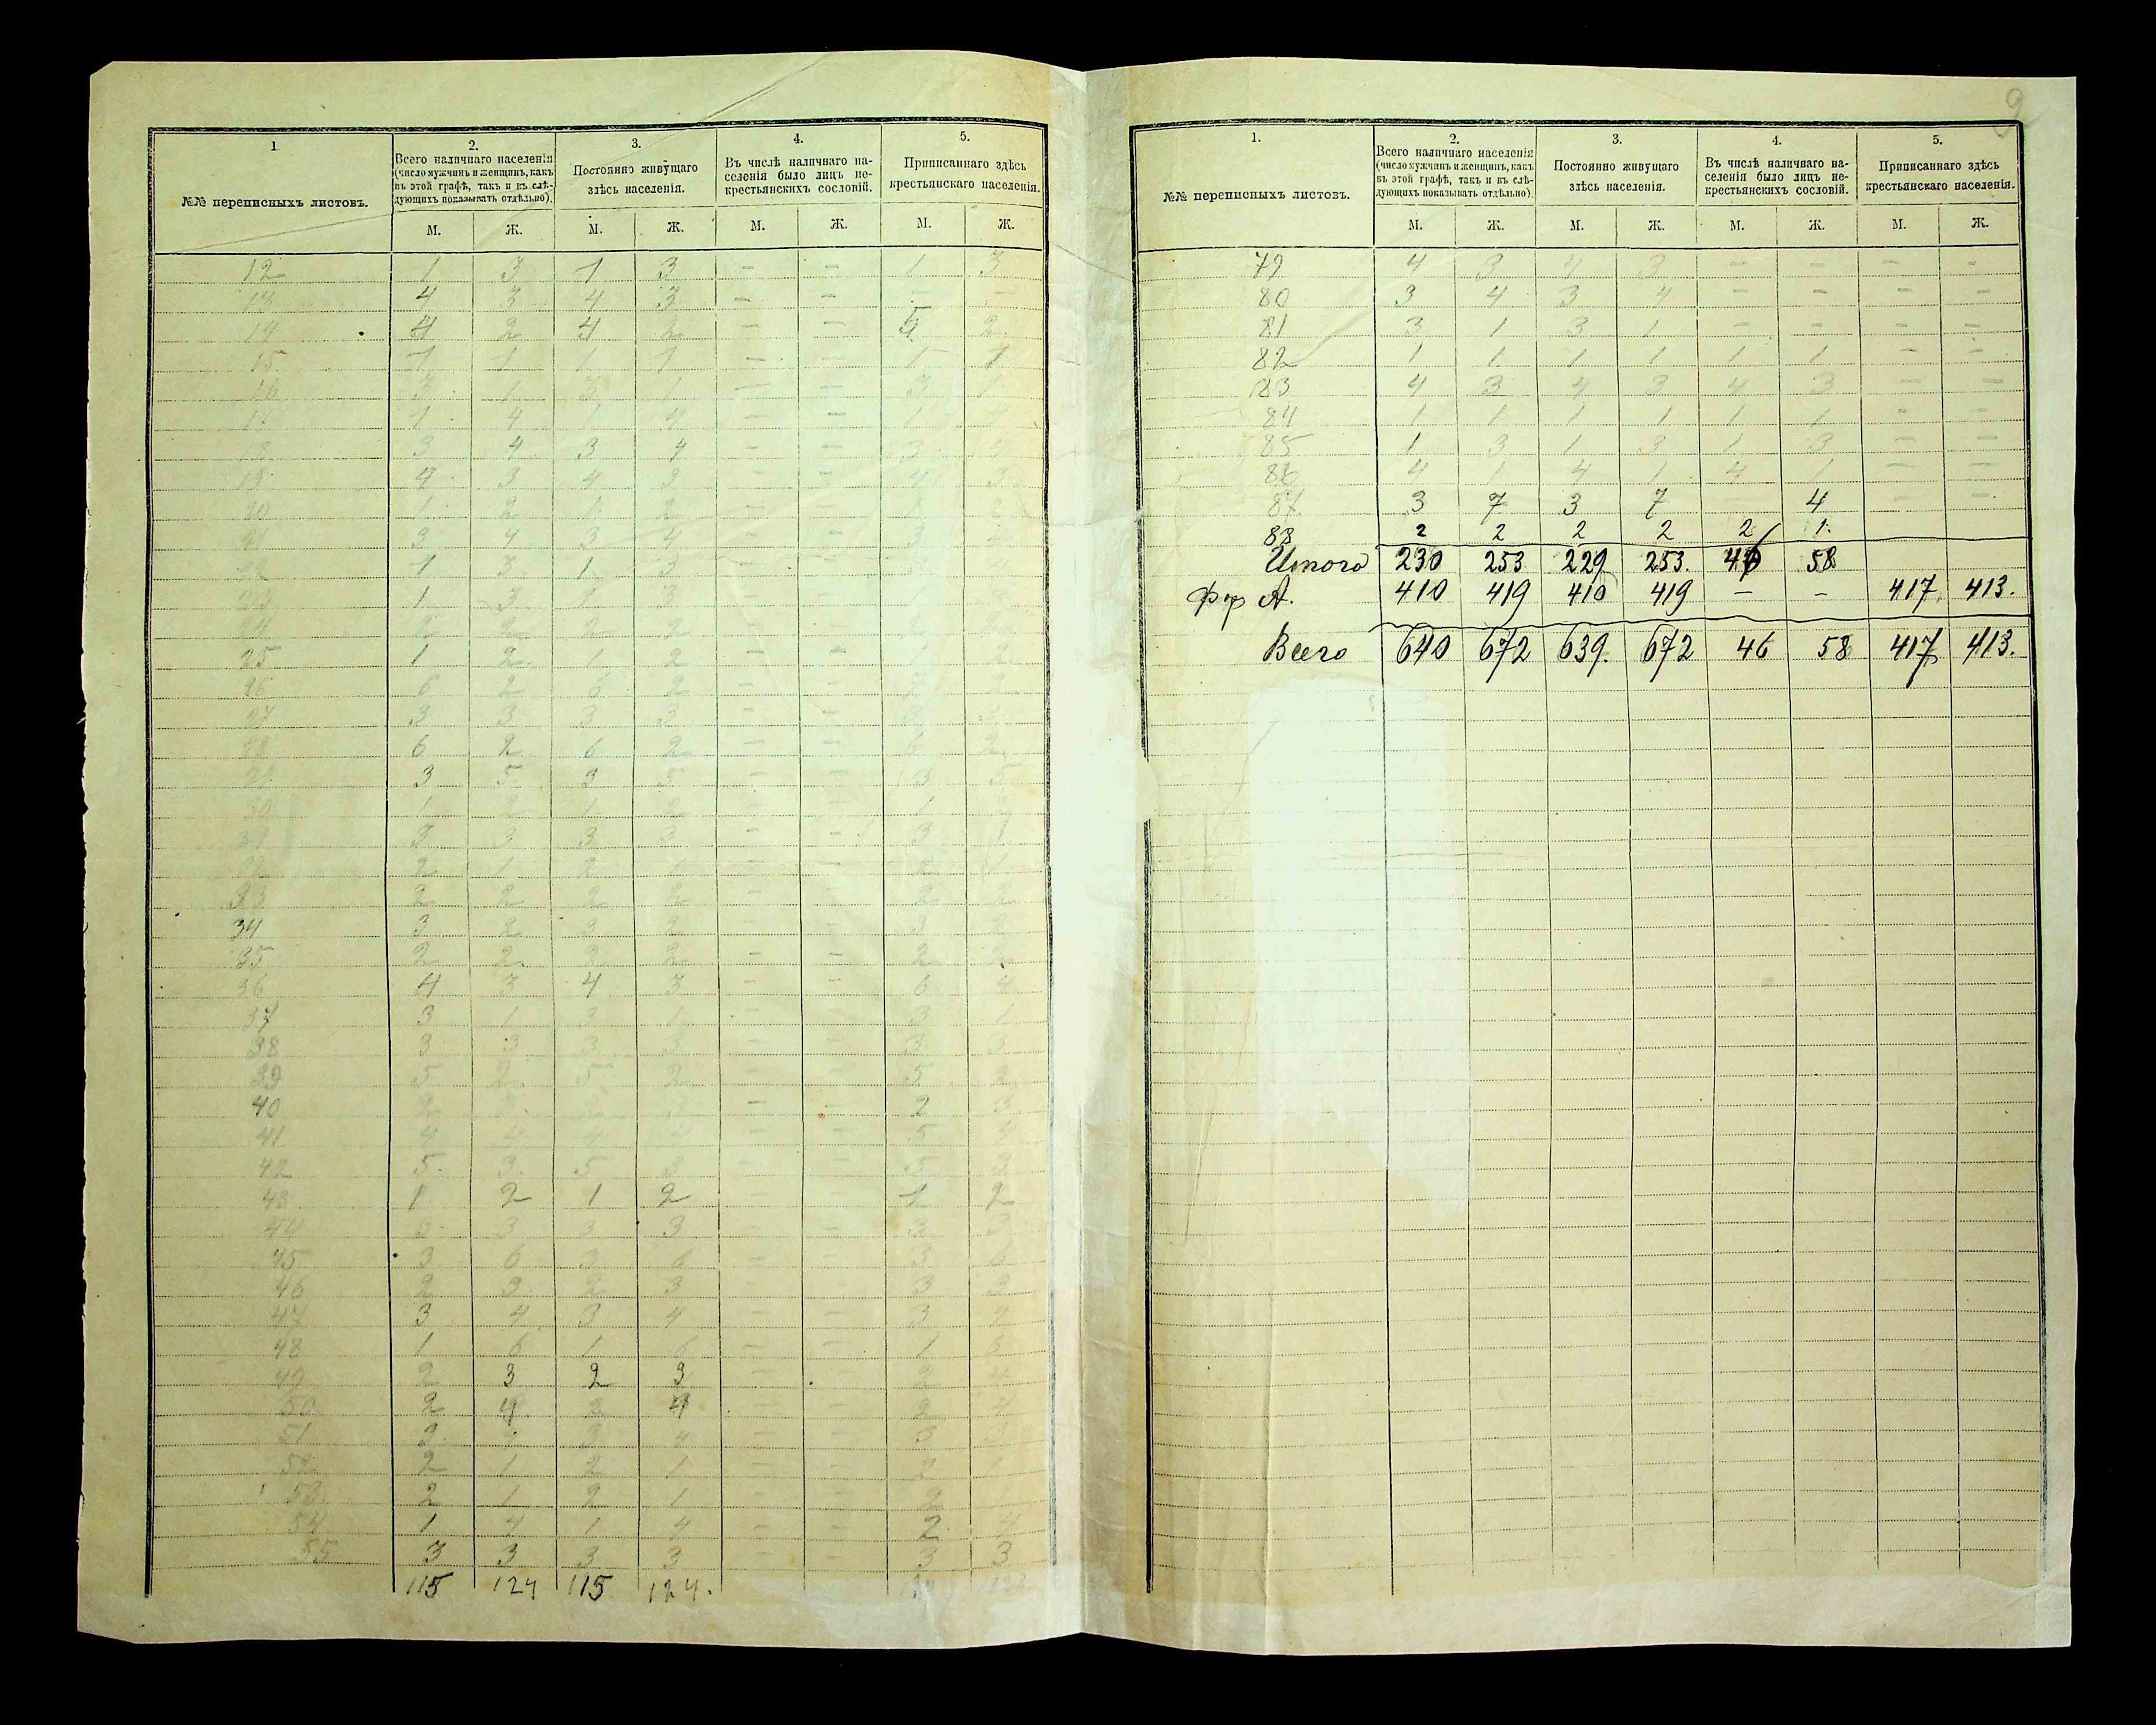 1 2. 3. 4. 5.
№№ переписныхъ листовъ. Всего наличнаго населенія (число мужчинъ и женщинъ, какъ въ этой графѣ, такъ и въ слѣдующихъ показывать отдѣльно). Постоянно живущаго здѣсь населенія. Въ числѣ наличнаго населенія было лицъ некрестьянскихъ сословій. Приписаннаго здѣсь крестьянскаго населенія.
М. Ж. М. Ж. М. Ж. М. Ж.
12 1 3 1 3 - - 1 3
13 4 3 4 3 - - - -
14 4 2 4 2 - - 2
15 1 1 1 1 - - 1 1
16 3 1 3 1 - - 3 1
17 1 4 1 4 - - 1 4
18 3 4 3 4 - - 3 4
19 4 3 4 3 - - 4 3
20 1 2 1 2 - - 2
21 3 4 3 4 - - 3 4
22 1 3 1 3 - -
23 1 3 1 3 - - 1 3
24 2 2 2 2 - -
25 1 2 1 2 - - 1 2
26 6 2 6 2 - - 2
27 3 3 3 3 - - 3 3
28 6 2 6 2 - - 6 2
29 3 5 3 5 - - 3 5
30 1 2 1 2 - - 1
31 3 3 3 3 - - 3 3
32 2 1 2 1 - - 2 1
33 2 2 2 2 - - 2 2
34 3 2 3 2 - - 3 2
35 2 2 2 2 - - 2 2
36 4 3 4 3 - - 6 4
37 3 1 3 1 - - 3 1
38 3 3 3 3 - - 3 3
39 5 2 5 2 - - 5 2
40 2 3 2 3 - - 2 3
41 4 4 4 4 - - 5
42 5 3 5 3 - - 5 3
43 1 2 1 2 - - 1 2
44 3 3 3 - - 3 3
45 3 6 3 6 - - 3 6
46 2 3 2 3 - - 3 3
47 3 4 3 4 - - 3 4
48 1 6 1 6 - - 1 6
49 2 3 2 3 - - 2 4
50 2 4 2 4 - - 2 4
51 3 3 4 - - 3 3
52 2 1 2 1 - - 2
53 2 1 2 1 - - 2 1
54 1 4 1 4 - - 2 4
55 3 3 3 3 - - 3 3
115 124 115 124.
9
1. 2. 3. 4. 5.
№№ переписныхъ листовъ. Всего наличнаго населенія (число мужчинъ и женщинъ, какъ въ этой графѣ, такъ и въ слѣдующихъ показывать отдѣльно). Постоянно живущаго здѣсь населенія. Въ числѣ наличнаго населенія было лицъ некрестьянскихъ сословій. Приписаннаго здѣсь крестьянскаго населенія.
М. Ж. М. Ж. М. Ж. М. Ж.
79 4 3 4 3 - - - -
80 3 4 3 4 - - - -
81 3 1 3 1 - - - -
82 1 1 1 1 1 1 - -
83 4 3 4 3 4 3 - -
84 1 1 1 1 1 1 - -
85 1 3 1 3 1 3 - -
86 4 1 4 1 4 1 - -
87 3 7 3 7 - 4 - -
88 2 2 2 2 2 1.
Итого 230 253 229 253. 46 58
Фор А. 410 419 410 419 - - 417. 413.
Всего 640 672 639. 672 46 58 417 413.